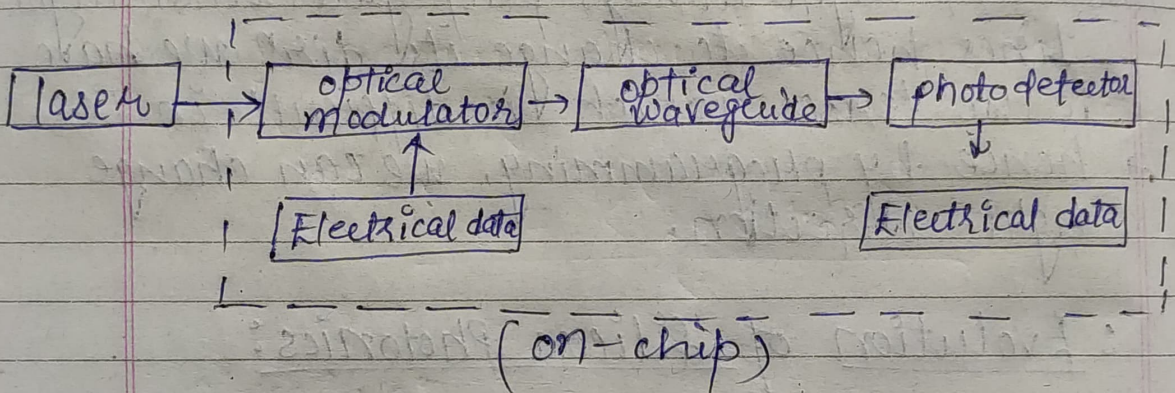 laser
optical
modulator
optical
waveguide
photodetector
Electrical data
Electrical data
(on-chip)